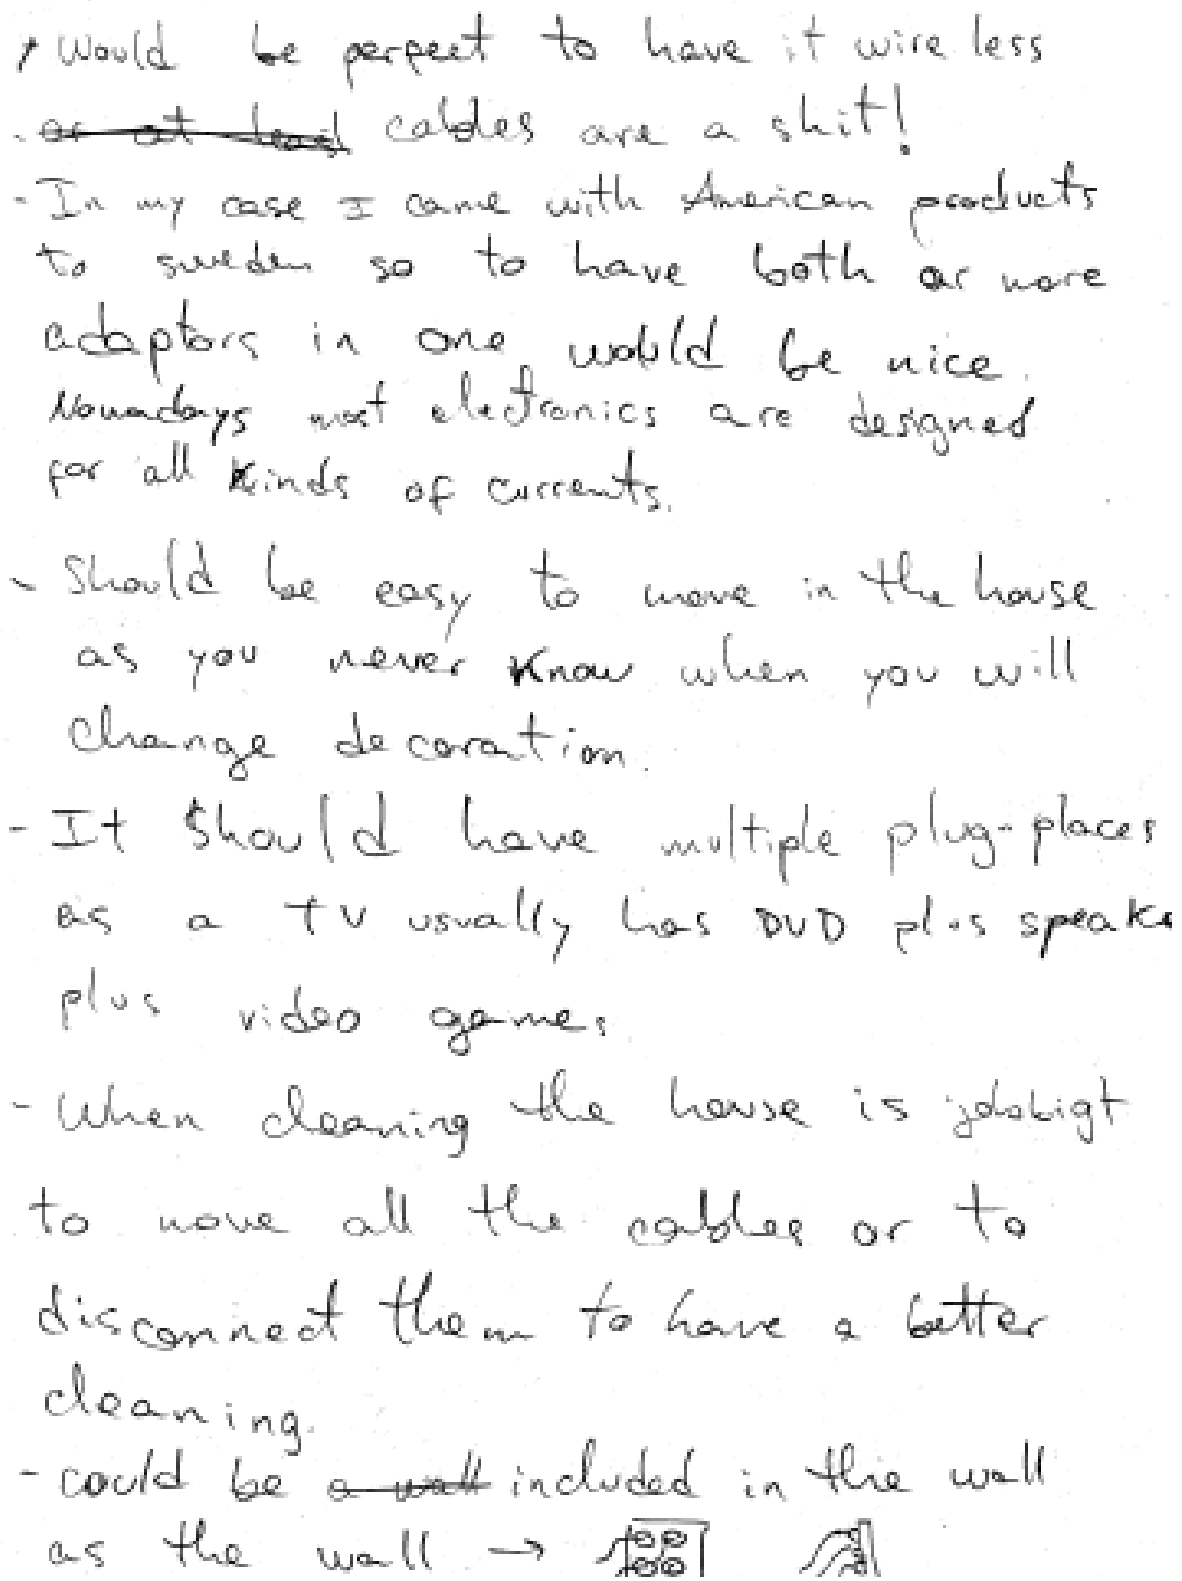 - Would be perfect to have it wire less
- or at least cables are a shit!
- In my case I came with American products
to sweden so to have both or more
adaptors in one would be nice.
Nowadays most electronics are designed
for all kinds of currents.
- Should be easy to move in the house
as you never know when you will
change decoration.
- It should have multiple plug-places
as a TV usually has DVD plus speaks
plus video games
- When cleaning the house is jobbigt
to move all the cables or to
disconnect them to have a better
cleaning.
- could be a wall included in the wall
as the wall →